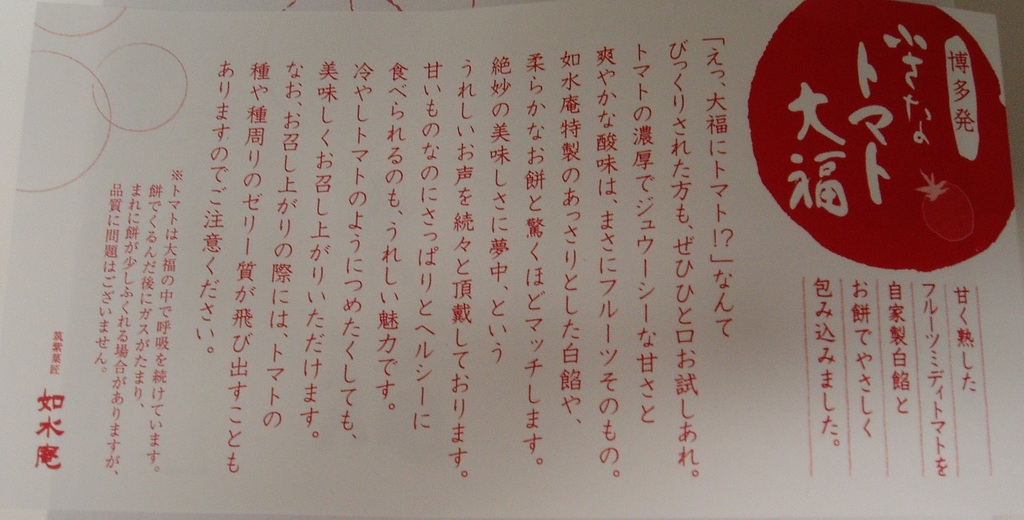 博多発
小さな
トマト
大福
甘く熟した
フルーツミディトマトを
自家製白餡と
お餅でやさしく
包み込みました。
「えっ、大福にトマト!?」なんて
びっくりされた方も、ぜひひと口お試しあれ。
トマトの濃厚でジューシーな甘さと
爽やかな酸味は、まさにフルーツそのもの。
如水庵特製のあっさりとした白餡や、
柔らかなお餅と驚くほどマッチします。
絶妙の美味しさに夢中、という
うれしいお声を続々と頂戴しております。
甘いものなのにさっぱりとヘルシーに
食べられるのも、うれしい魅力です。
冷やしトマトのようにつめたくしても、
美味しくお召し上がりいただけます。
なお、お召し上がりの際には、トマトの
種や種周りのゼリー質が飛び出すことも
ありますのでご注意ください。
※トマトは大福の中で呼吸を続けています。
餅でくるんだ後にガスがたまり、
まれに餅が少しふくれる場合がありますが、
品質に問題はございません。
筑紫菓匠
如水庵